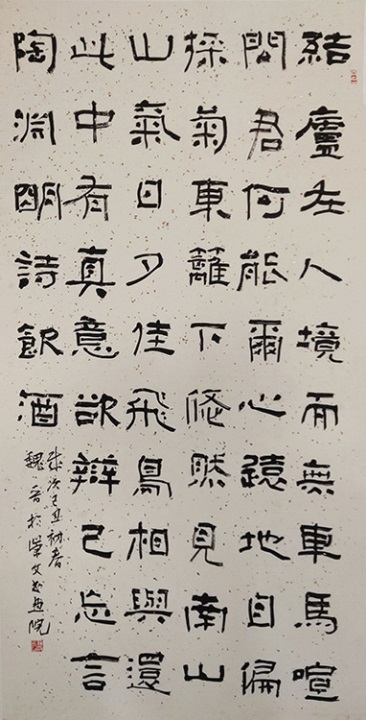 結廬在人境而無車馬喧
問君何能爾心遠地自偏
採菊東籬下悠然見南山
山氣日夕佳飛鳥相與還
此中有真意欲辯已忘言
陶淵明詩飲酒
歲次己丑初春
魏晉於崇文書畫院